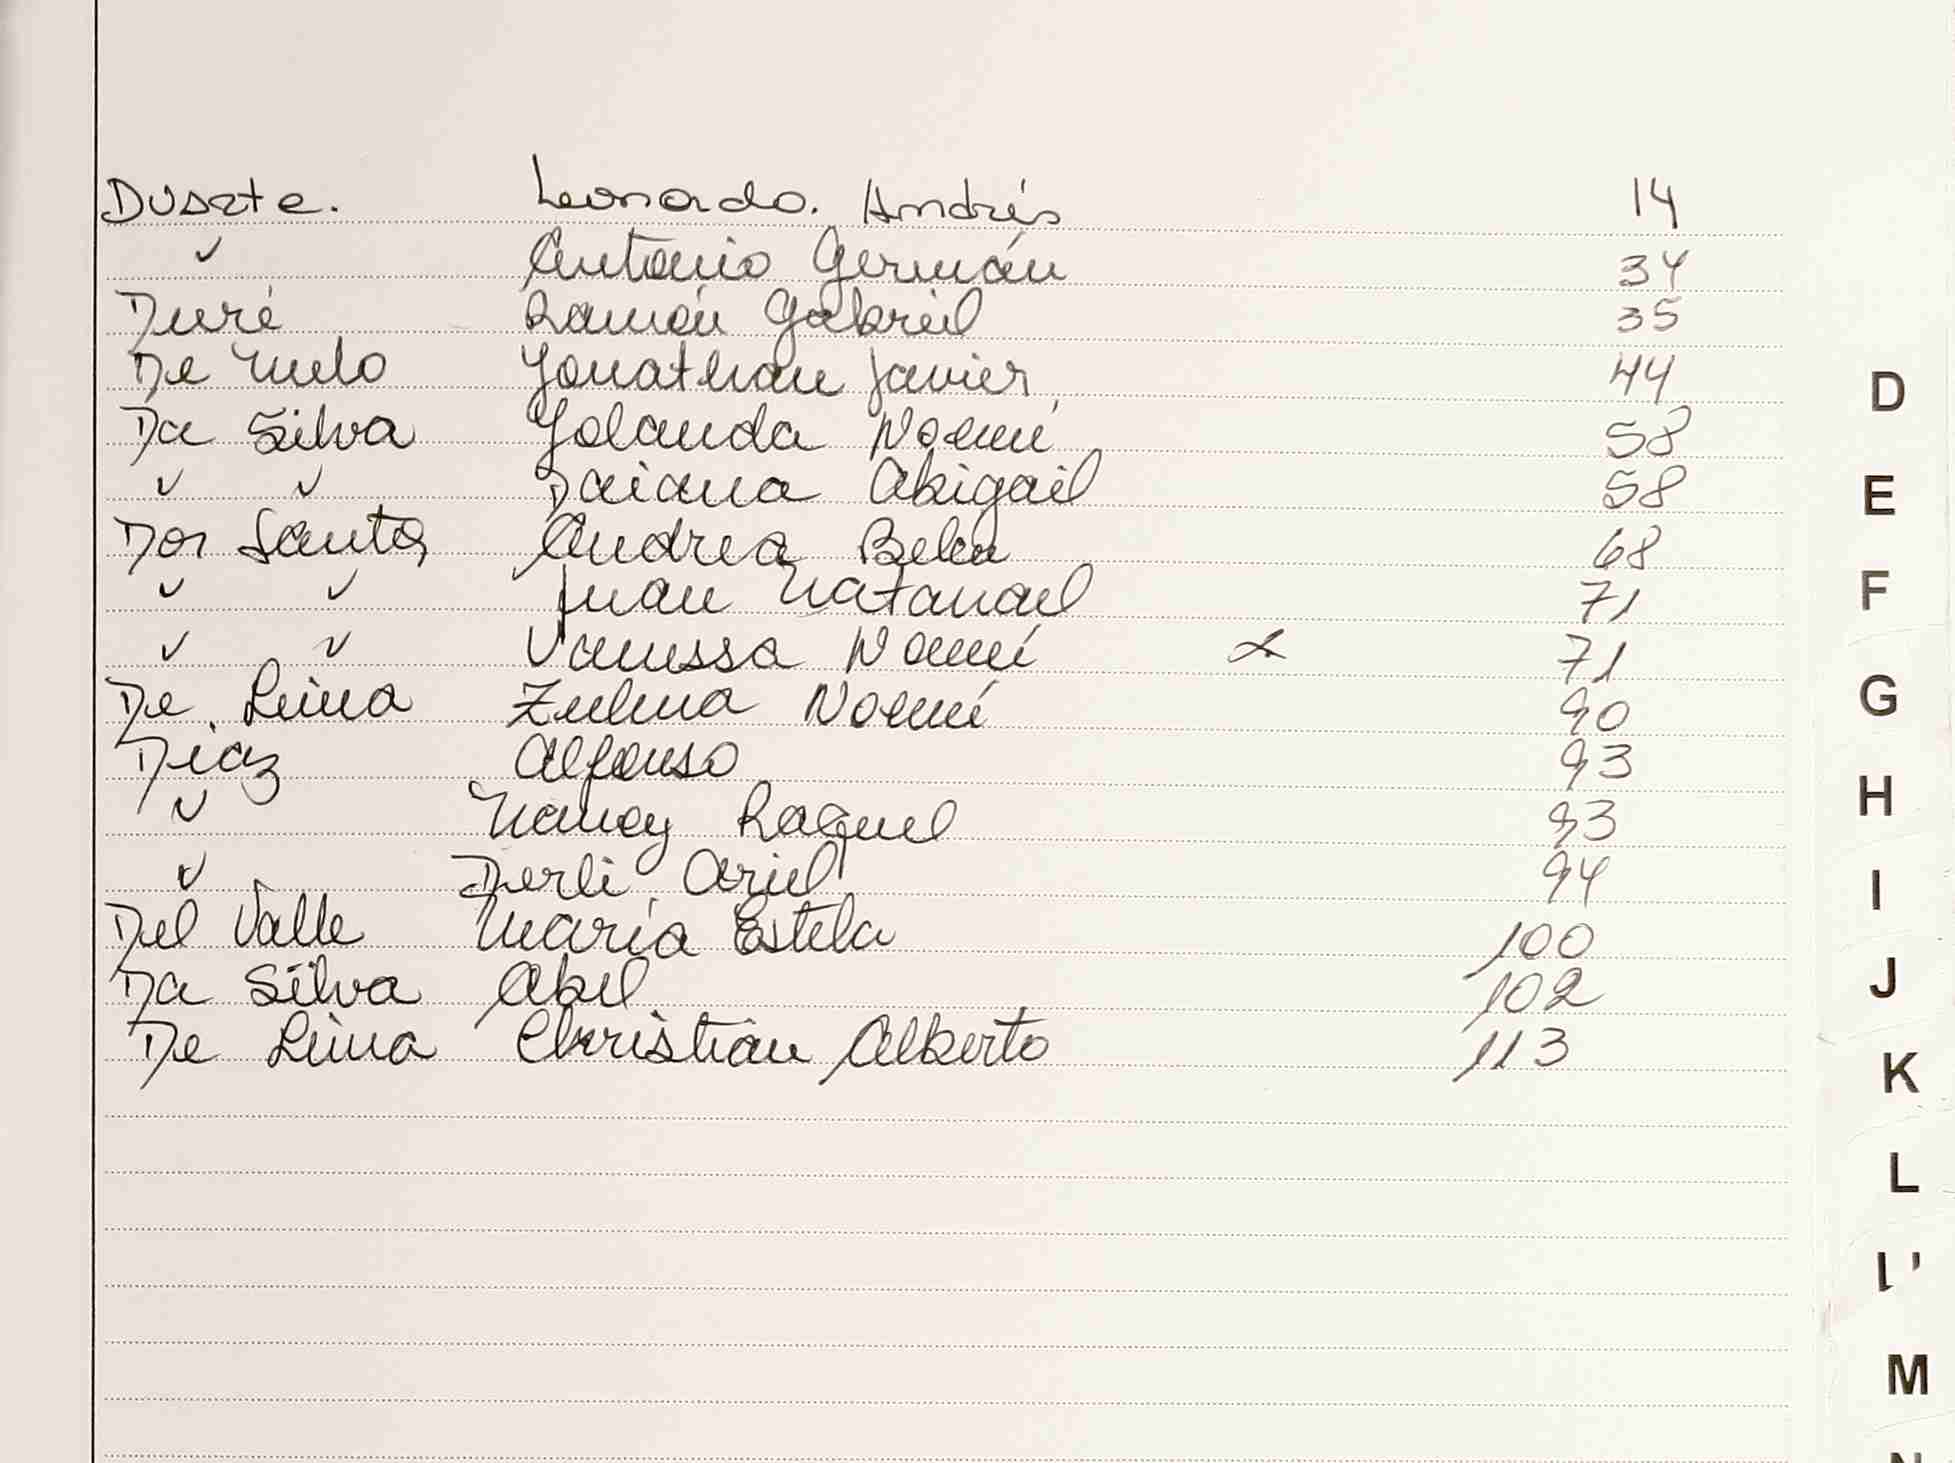 Duarte. Leonardo. Andrés 14
✓ Antonio Germán 34
Duré Ramón Gabriel 35
De Melo Yonathan Javier 44
Da Silva Yolanda Noemí 58
✓ ✓ Daiana Abigail 58
Dos Santos Andrea Belen 68
✓ ✓ Juan Natanael 71
✓ ✓ Vanessa Noemí x 71
De Lima Zulma Noemí 90
Diaz Alfonso 93
✓ Nancy Raquel 93
✓ Derli Ariel 94
Del Valle María Estela 100
Da Silva Abel 102
De Lima Christian Alberto 113
D
E
F
G
H
I
J
K
L
M